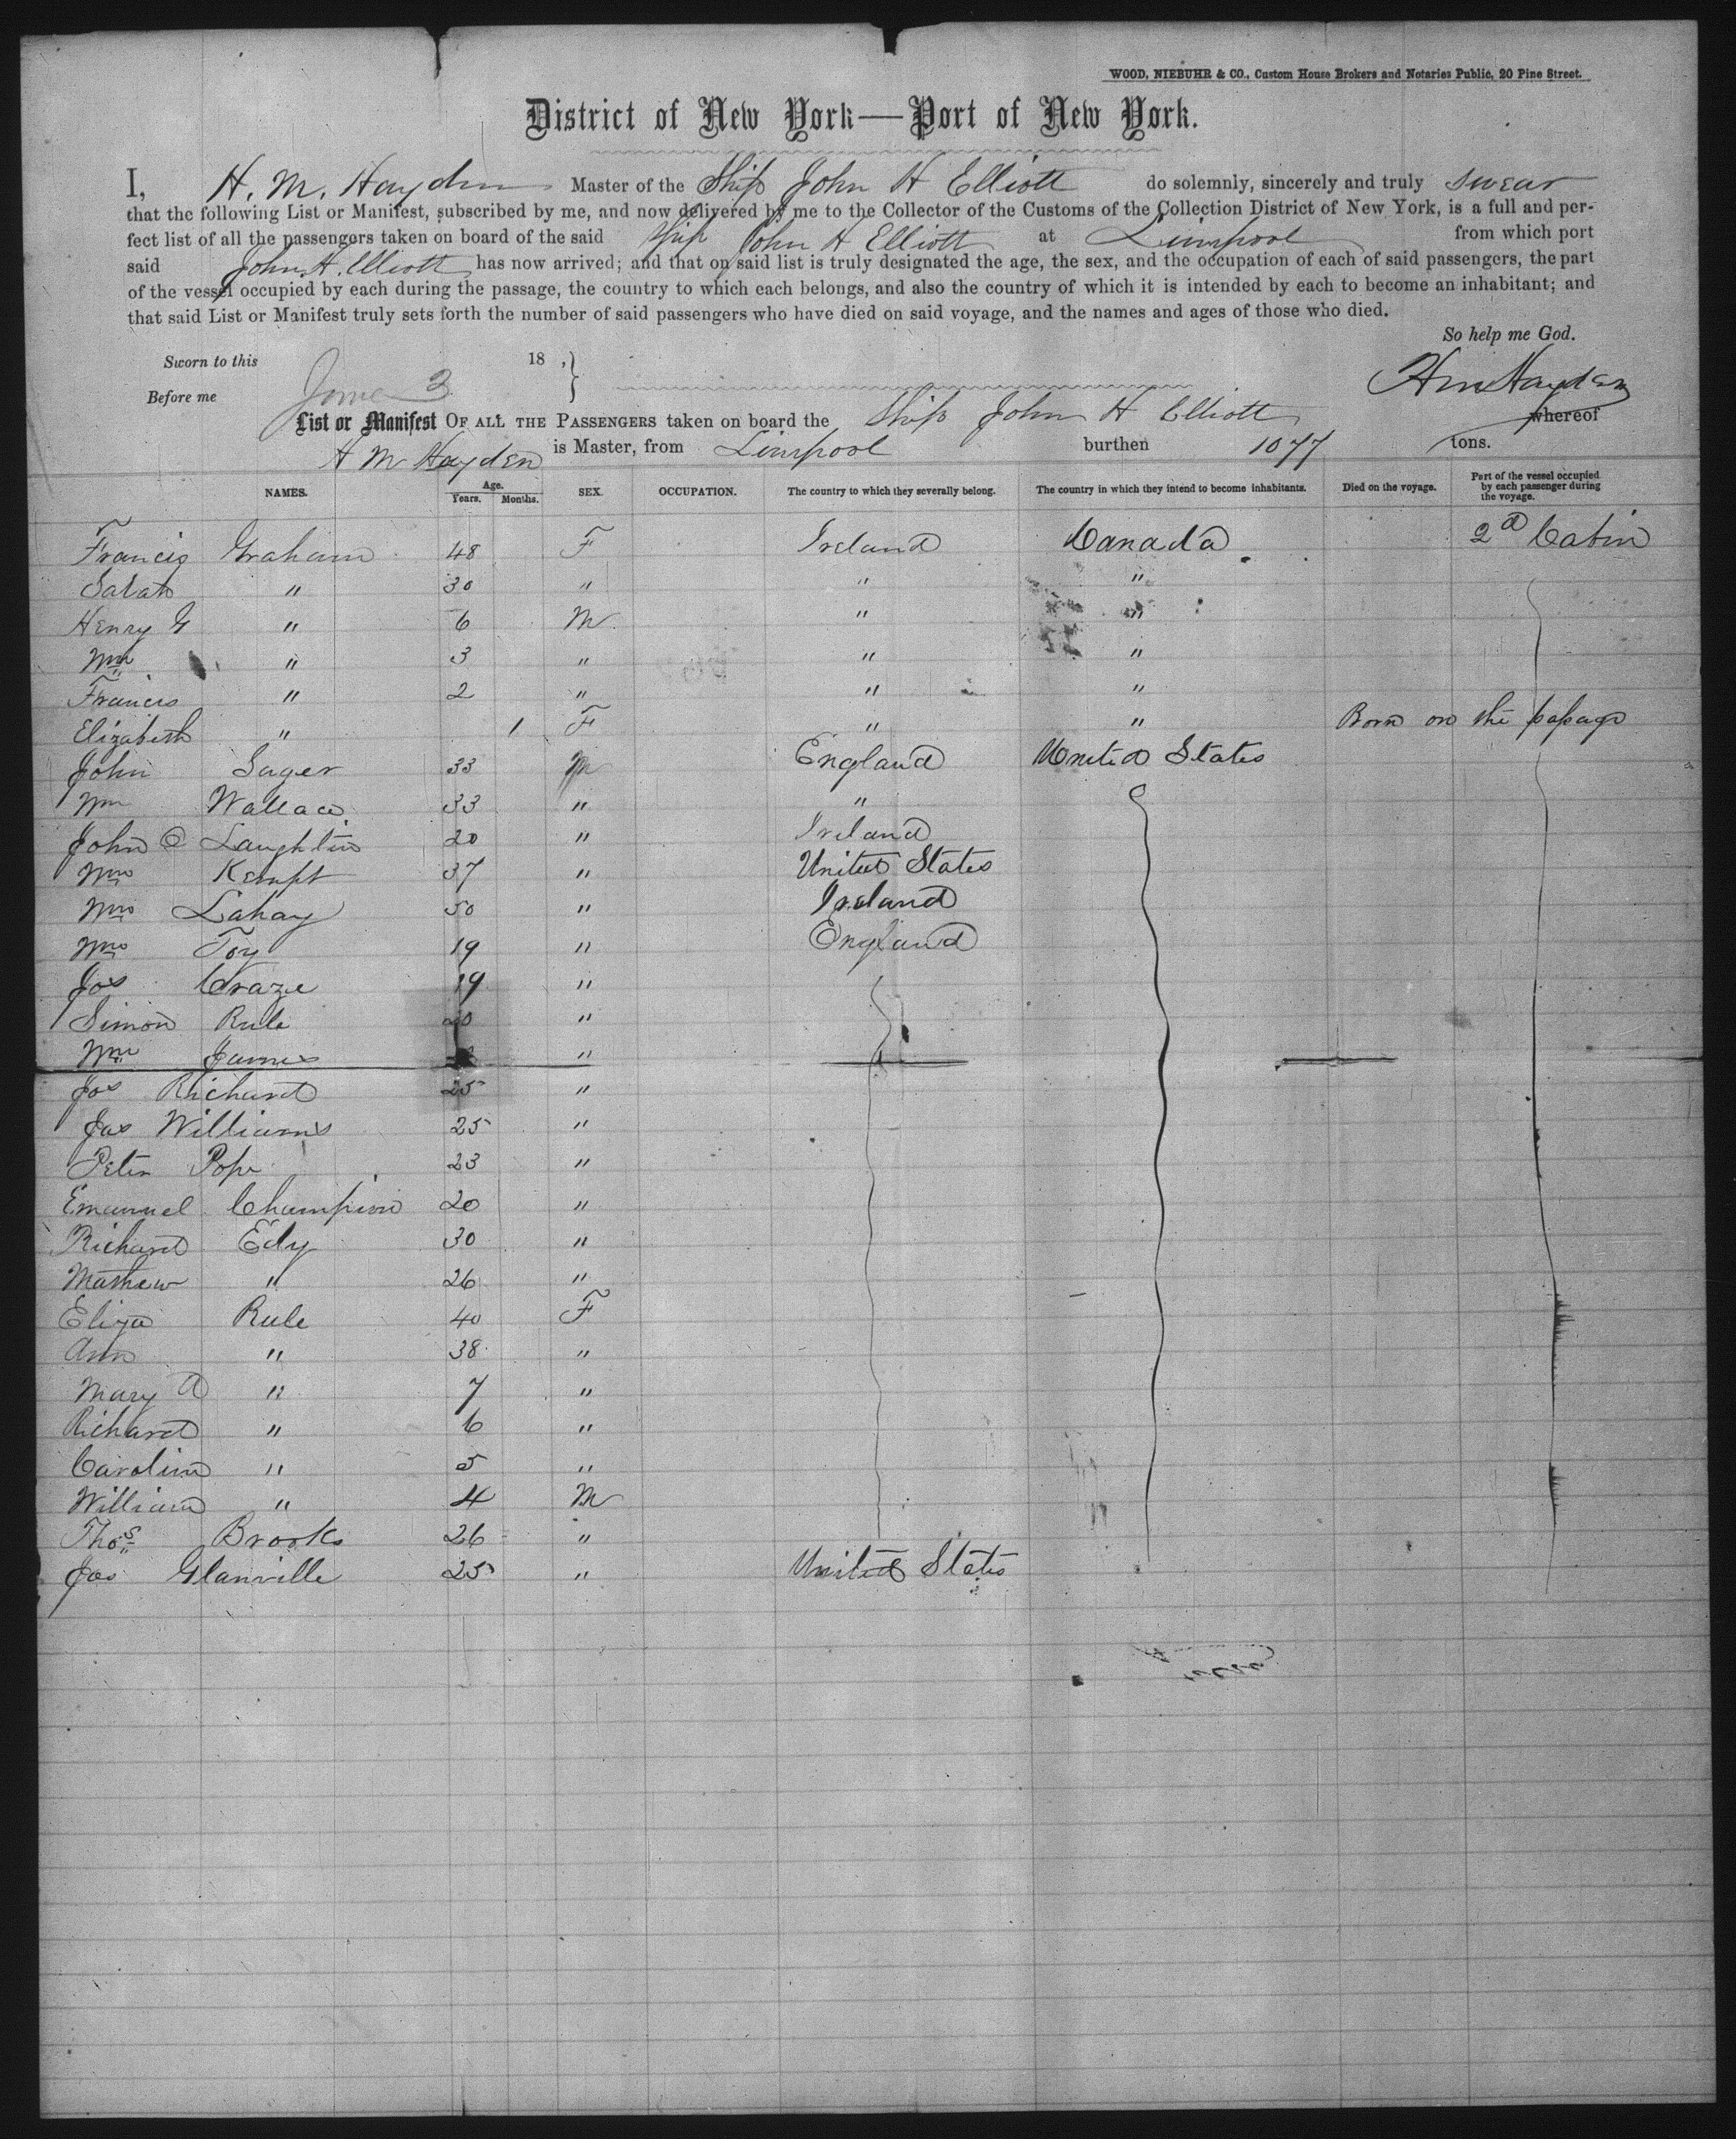 WOOD, NIEBUHR & CO., Custom House Brokers and Notaries Public, 20 Pine Street.
District of New York—Port of New York.
I, H. M. Hayden Master of the Ship John H Elliott do solemnly, sincerely and truly swear
that the following List or Manifest, subscribed by me, and now delivered by me to the Collector of the Customs of the Collection District of New York, is a full and per-
fect list of all the passengers taken on board of the said Ship John H Elliott at Liverpool from which port
said John H. Elliott has now arrived; and that on said list is truly designated the age, the sex, and the occupation of each of said passengers, the part
of the vessel occupied by each during the passage, the country to which each belongs, and also the country of which it is intended by each to become an inhabitant; and
that said List or Manifest truly sets forth the number of said passengers who have died on said voyage, and the names and ages of those who died.
So help me God.
Sworn to this June 3 18 ,}
Before me
H M Hayden
List or Manifest OF ALL THE PASSENGERS taken on board the Ship John H Elliott whereof
H M Hayden is Master, from Liverpool burthen 1077 tons.
NAMES. Age. Years. Months. SEX. OCCUPATION. The country to which they severally belong. The country in which they intend to become inhabitants. Died on the voyage. Part of the vessel occupied by each passenger during the voyage.
Francis Graham 48 F Ireland Canada 2d Cabin
Sarah " 30 " " "
Henry G " 6 M " "
Wm " 3 " " "
Francis " 2 " " "
Elizabeth " 1 F " " Born on the passage
John Sager 33 M England United States
Wm Wallace 33 " "
John O Laughlin 20 " Ireland
Wm Kempt 37 " United States
Wm Lahay 50 " Ireland
Wm Toy 19 " England
Jos Craze 19 "
Simon Rule 20 "
Wm James "
Jos Richard 25 "
Jas Williams 25 "
Peter Pope 23 "
Emanuel Champion 20 "
Richard Edy 30 "
Mathew " 26 "
Eliza Rule 40 F
Ann " 38 "
Mary A " 7 "
Richard " 6 "
Carolin " 5 "
William " 4 M
Thos Brooks 26 "
Jos Glanville 25 " United States